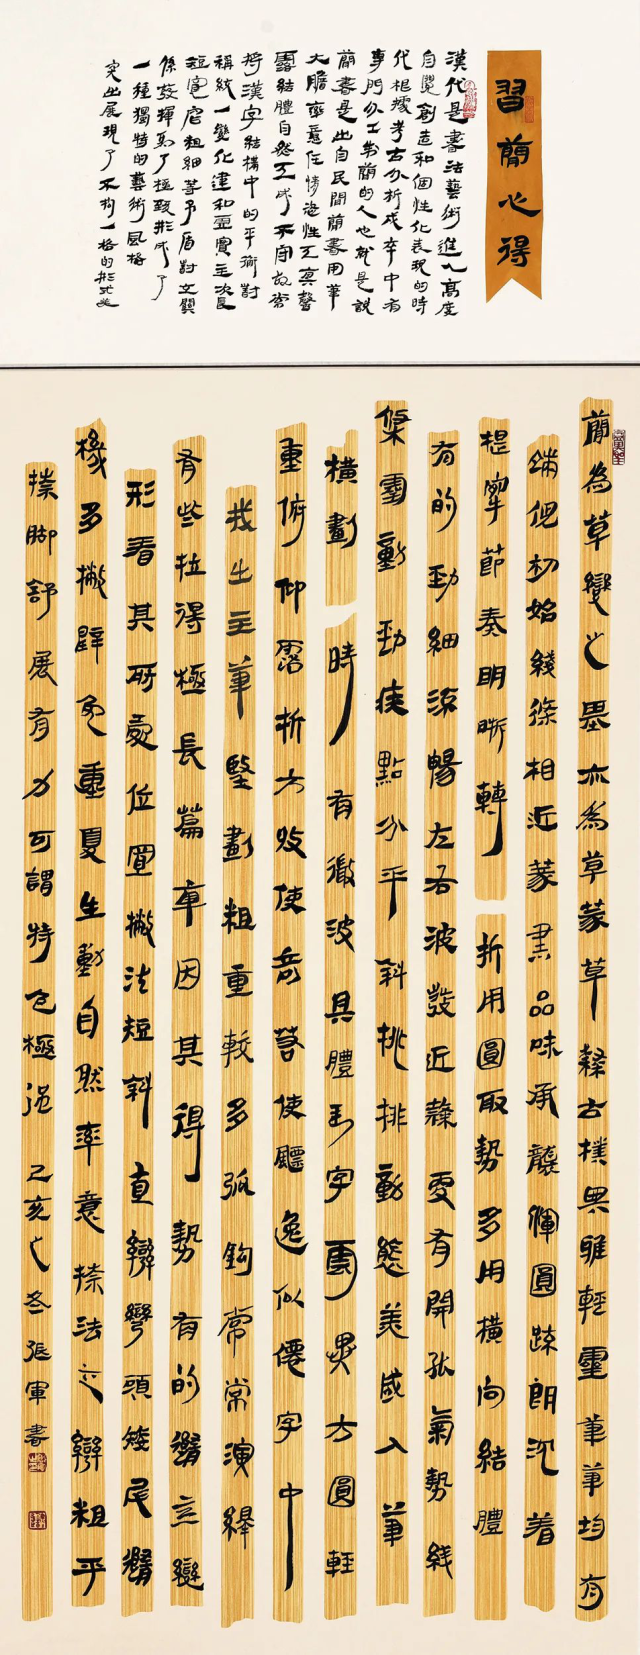 習簡心得
漢代是書法藝術進入高度
自覺創造和個性化表現的時
代根據考古分析戍卒中有
專門分工寫簡的人也就是說
簡書是出自民間簡書用筆
大膽率意任情恣性工真馨
露結體自然天成了不同故常
將漢字結構中的平衡對
稱統一變化違和虛實主次長
短寬窄粗細等矛盾對立關
係發揮到了極致形成了
一種獨特的藝術風格
突出展現了不拘一格的形式美
簡為草變之墨亦為草篆草隸古樸典雅輕靈筆筆均有
端倪初始綫條相近篆書品味承襲渾圓疏朗沉着
提按節奏明晰轉折用圓取勢多用橫向結體
有的勁細流暢左右波發近隸更有開張氣勢綫
條靈動勁疾點分平斜挑排動態美感入筆
橫劃時有微波具體到字圓異方圓輕
重俯仰露折方收使奇苔使飄逸似僊字中
我出主筆竪劃粗重較多弧鈎常常演繹
有些拉得極長篇章因其得勢有的
形看其所處位置撇法短斜直彎頭矮尾
橡多撇避免重复生動自然率意捺法之粗平
捺脚舒展有力可謂特色極過己亥之冬張軍書